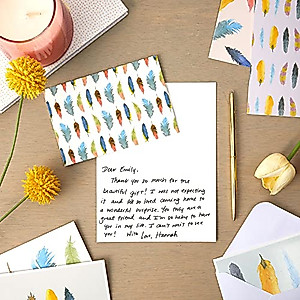 Dear Emily,
Thank you so much for the
beautiful gift! I was not expecting
it and let so loved coming home to
a wonderful surprise. You truly are a
great friend and I'm so happy to have
you in my life. I can't wait to see
you! With Love, Hannah